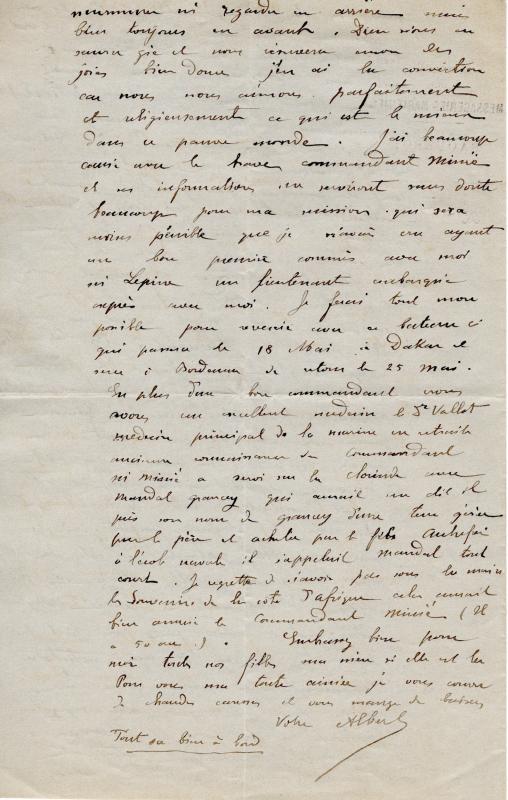 regarder en arrière mais
bien toujours en avant. Dieu
et nous
joies bien doux j'en ai la conviction
car nous nous aimons parfaitement
et religieusement ce qui est le mieux
dans ce pauvre monde. J'ai beaucoup
causé avec le brave commandant Minié
et ses informations me serviront sans doute
beaucoup pour ma mission qui sera
moins pénible que je n'avais cru ayant
un bon premier commis avec moi
ni Lepine un lieutenant embarqué
avec moi. Je ferai tout mon
possible pour revenir avec ce bateau ci
qui passera le 18 Mai à Dakar et
sera à Bordeaux de retour le 25 Mai.
En plus d'un bon commandant nous
avons un excellent médecin le Dr Vallot
médecin principal de la marine en retraite
ancienne connaissance du Commandant
Minié a servi sur la avec
Mandal grancey qui aurait me dit il
pris son nom de grancey d'une terre
par le père et achetée par le fils Autrefois
à l'école navale il s'appelait Mandal tout
court. Je regrette de n'avoir pas sous la main
les Souvenirs de la côte d'Afrique cela aurait
bien amusé le Commandant Minié (Il
a 50 ans.). Embrassez bien pour
moi toutes nos filles ma mère si elle est là
Pour vous ma toute aimée je vous couvre
de chaudes caresses et vous mange de baisers
Votre Albert
Tout va bien à bord